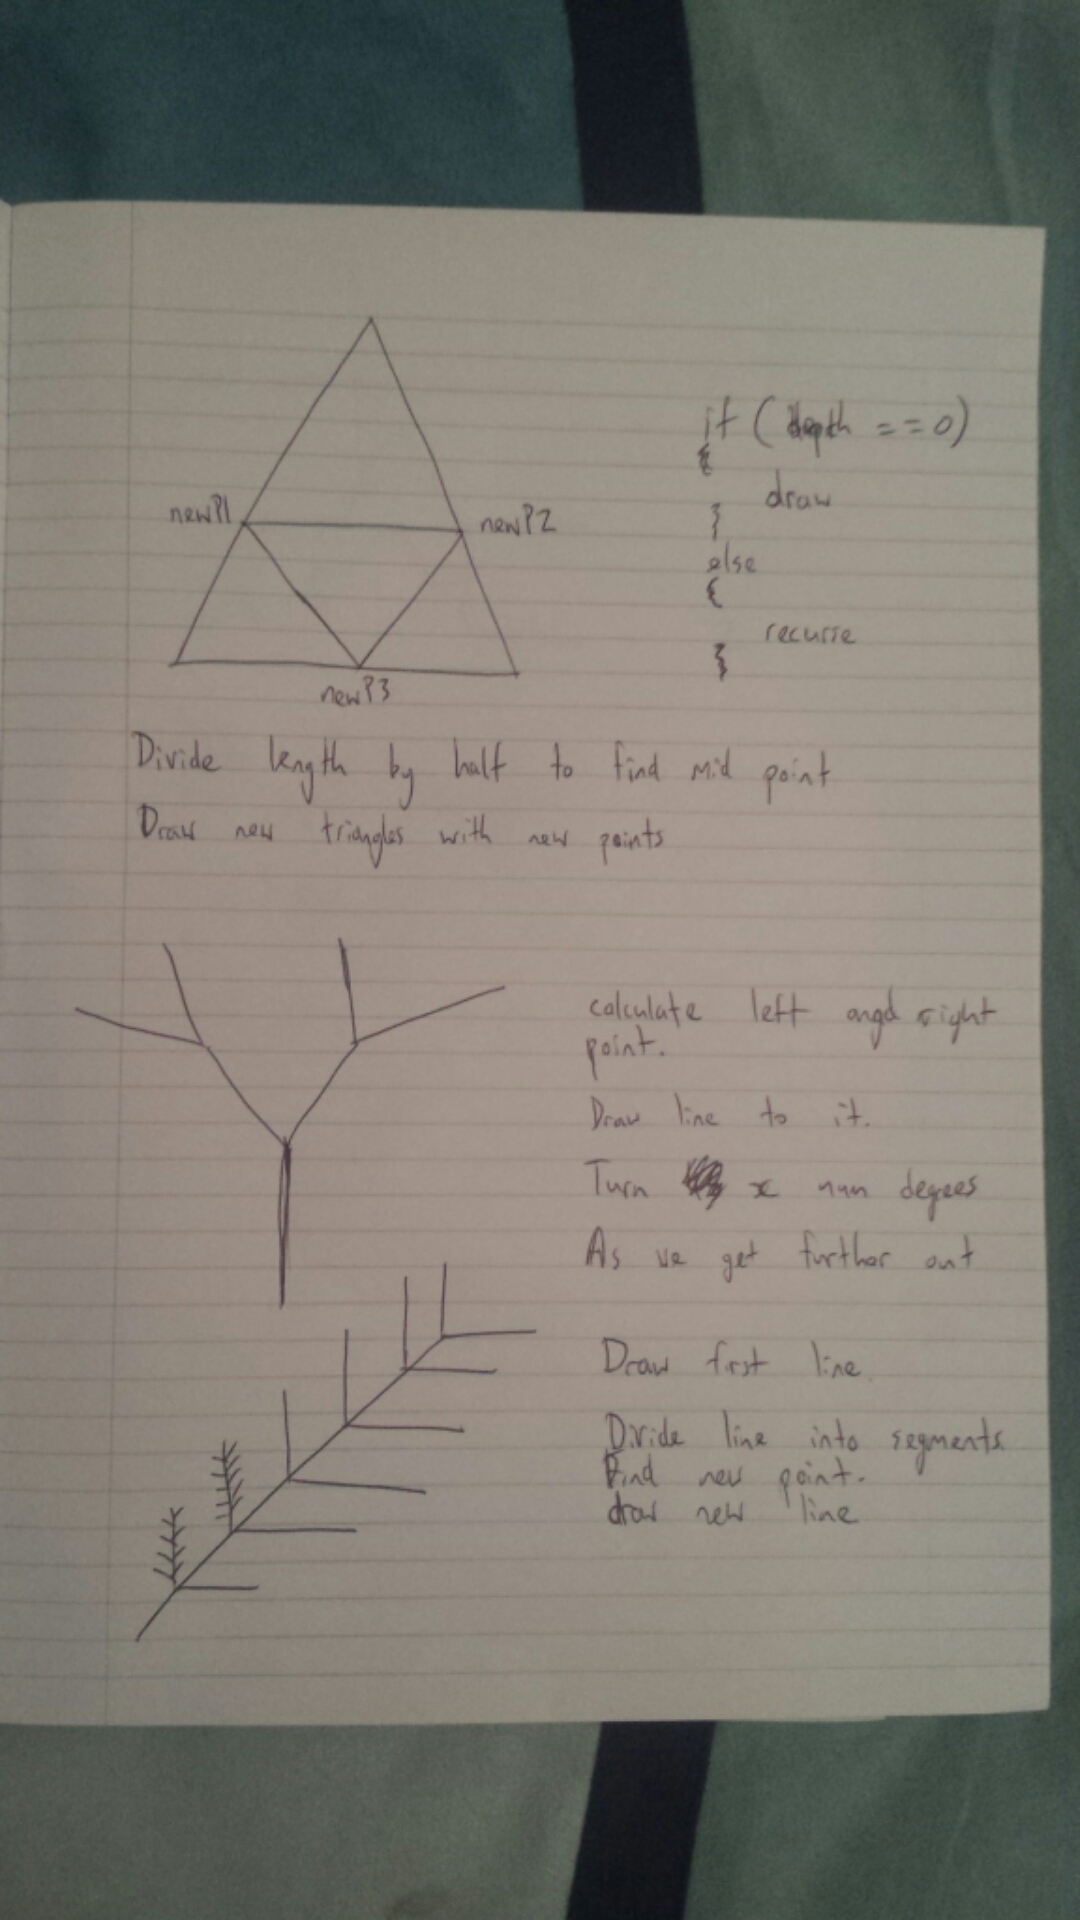 if (depth == 0)
{
draw
}
else
{
recurse
}
newP1
newP2
newP3
Divide length by half to find mid point
Draw new triangles with new points
calculate left angd right
point.
Draw line to it.
Turn x num degees
As we get further out
Draw first line
Divide line into segments.
Find new point.
draw new line